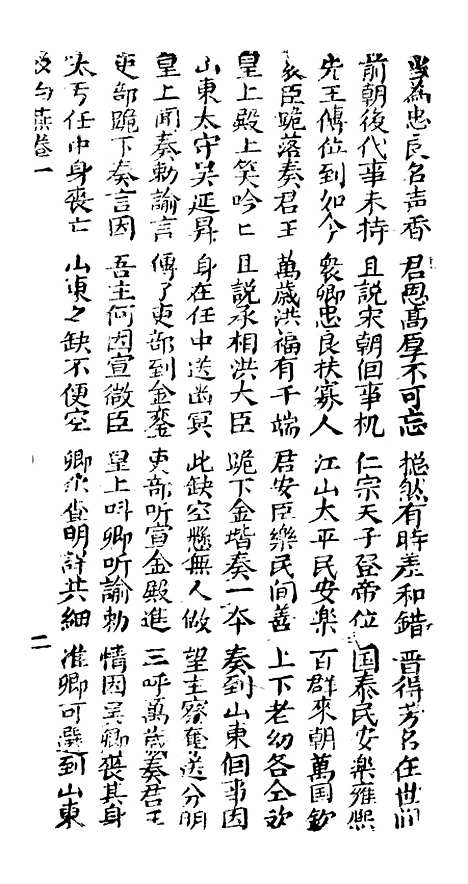 当為忠良名声香 君恩高厚不可忘 縂然有時差和錯 晋得芳名在世间
前朝後代事未持 且説宋朝佪事机 仁宗天子登帝位 国泰民安樂雍熙
先王傳位到如今 衆卿忠良扶寡人 江山太平民安樂 百群來朝萬国欽
衆臣跪落奏君王 萬歲洪福有千端 君安臣樂民间善 上下老幼各仝欢
皇上殿上笑吟匕 且説承相洪大臣 跪下金堦奏一本 奏到山東佪事因
山東太守吴延昇 身在任中送幽冥 此缺空懸無人做 望主察奪送分明
皇上闻奏勅諭言 傳了吏部到金銮 吏部听宣金殿進 三呼萬歲奏君王
吏部跪下奏言因 吾主何因宣微臣 皇上呌卿听諭勅 情因吴卿喪其身
太守任中身喪亡 山東之缺不便空 卿查明詳共細 准卿可選到山東
白燕卷一 二